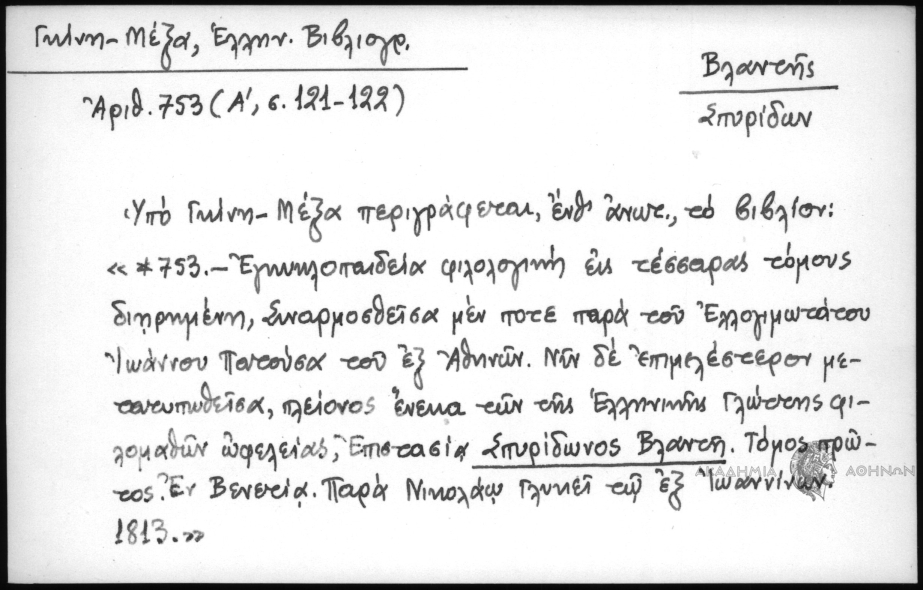 Γκίνη-Μέξα, Ἑλλην. Βιβλιογρ.
Ἀριθ. 753 (Α', σ. 121-122)
Βλαντῆς
Σπυρίδων
Ὑπό Γκίνη-Μέξα περιγράφεται, ἔνθ' ἀνωτ., τό βιβλίον:
«*753.- Ἐγκυκλοπαιδεία φιλολογική εἰς τέσσαρας τόμους
διῃρημένη, Συναρμοσθεῖσα μέν ποτε παρά τοῦ Ἐλλογιμωτάτου
Ἰωάννου Πατούσα τοῦ ἐξ Ἀθηνῶν. Νῦν δέ ἐπιμελέστερον με-
τατυπωθεῖσα, πλείονος ἕνεκα τῶν τῆς Ἑλληνικῆς Γλώττης φι-
λομαθῶν ὠφελείας, Ἐπιστασίᾳ Σπυρίδωνος Βλαντῆ. Τόμος πρῶ-
τος. Ἐν Βενετίᾳ. Παρά Νικολάῳ Γλυκεῖ τῷ ἐξ Ἰωαννίνων.
1813.»
ΑΚΑΔΗΜΙΑ ΑΘΗΝΩΝ